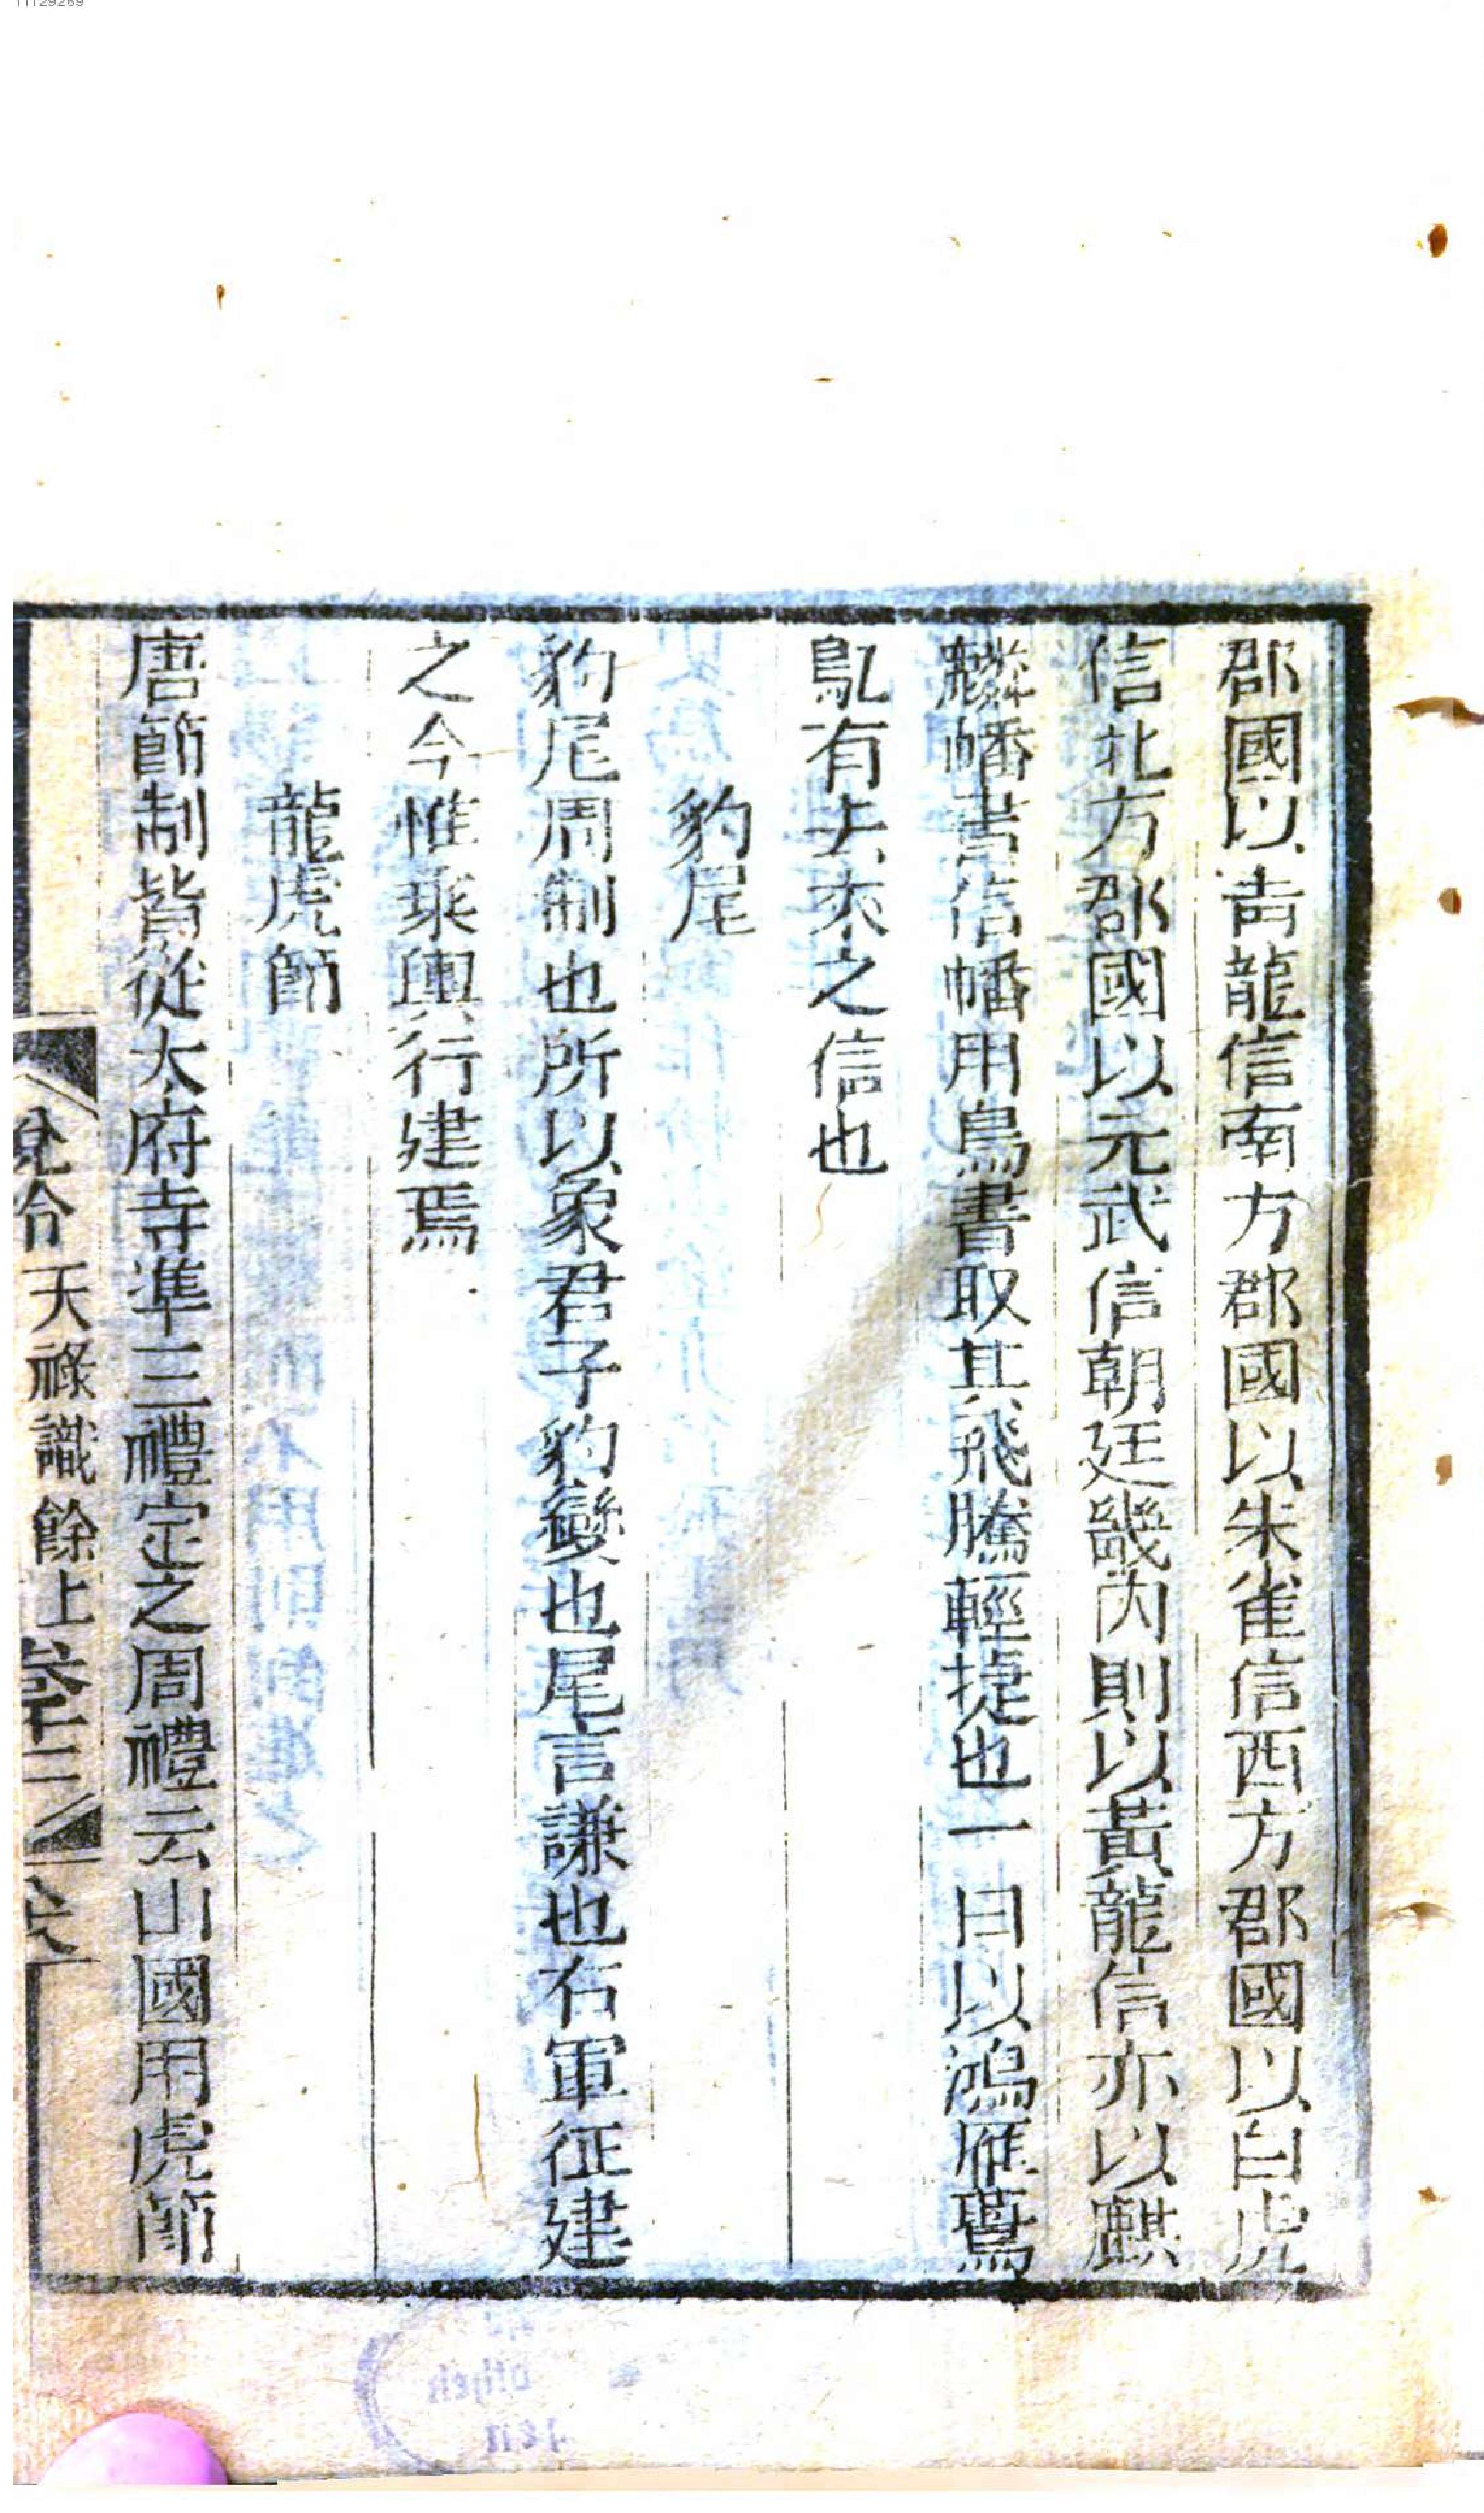 郡國以青龍信南方郡國以朱雀信西方郡國以白虎
信北方郡國以元武信朝廷畿內則以黃龍信亦以麒
麟幡書信幡用鳥書取其飛騰輕捷也一曰以鴻雁鷰
鳦有去來之信也
豹尾
豹尾周制也所以象君子豹變也尾言謙也右軍征建
之今惟乘輿行建焉
龍虎節
唐節制皆從太府寺準三禮定之周禮云山國用虎節
兌命天祿識餘上 卷十三